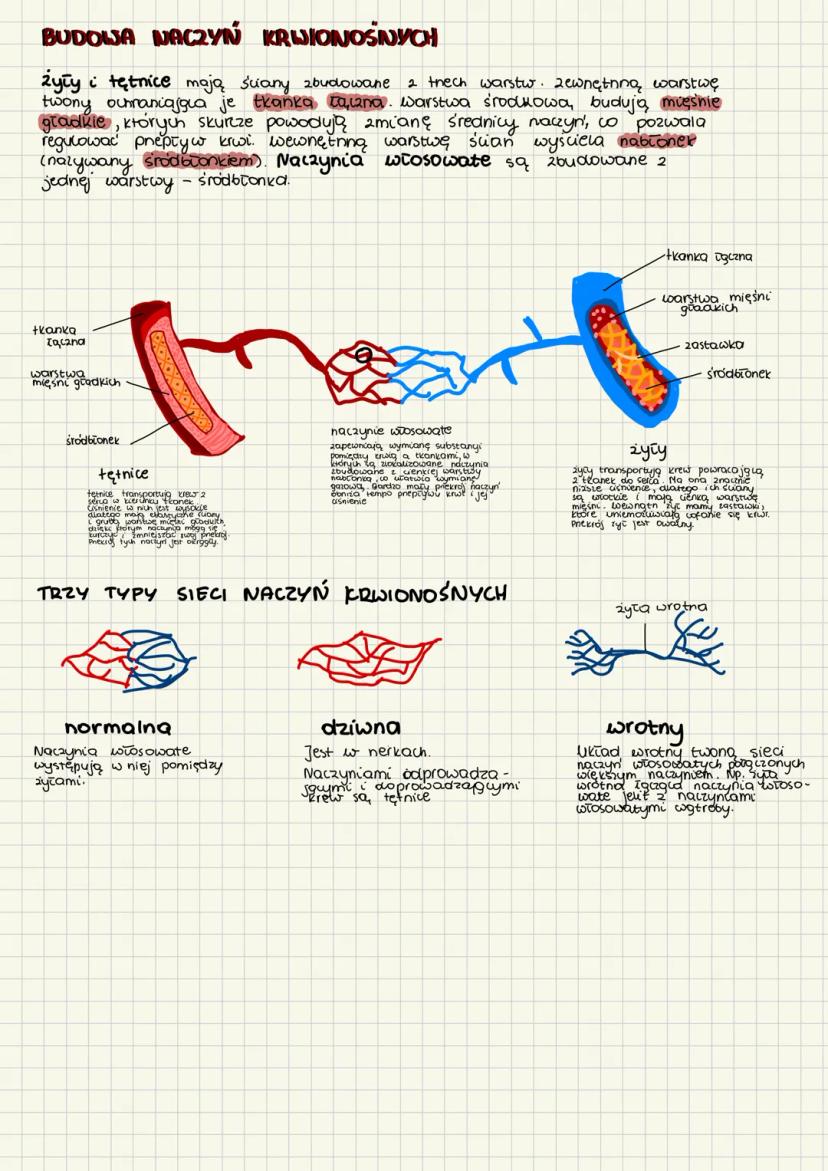 BUDOWA NACZYŃ KRWIONOŚNYCH
żyły i tętnice mają ściany zbudowane z trzech warstw. zewnętrzną warstwę
tworzy ochraniająca je tkanka łączna. warstwa środkową, budują mięśnie
gładkie, których skurcze powodują zmianę średnicy naczyń, co pozwala
regulować przepływ krwi. wewnętrzną warstwę ścian wyściela nabłonek
(nazywany śródbłonkiem). Naczynia włosowate są zbudowane z
jednej warstwy - śródbłonka.
tkanka
łączna
warstwa
mięśni gładkich
śródbłonek
tętnice
tętnice transportują krew z
serca w kierunku tkanek.
ciśnienie w nich jest wysokie
dlatego mają elastyczne ściany
i grubą warstwę mięśni gładkich,
dzięki którym naczynia mogą się
kurczyć i zmniejszać swój przekrój.
Przekrój tych naczyń jest okrągły.
naczynie włosowate
zapewniają wymianę substancji
pomiędzy krwią a tkankami, w
których są zlokalizowane. naczynia
zbudowane z cienkiej warstwy
nabłonka, co ułatwia wymianę
gazową. Bardzo mały przekrój naczyń
obniża tempo przepływu krwi i jej
ciśnienie
tkanka łączna
warstwa mięśni
gładkich
zastawka
śródbłonek
żyły
żyły transportują krew powracającą
z tkanek do serca. Ma ona znacznie
niższe ciśnienie, dlatego ich ściany
są wiotkie i mają cienką warstwę
mięśni. Wewnątrz żył mamy zastawki,
które uniemożliwiają cofanie się krwi.
Przekrój żył jest owalny.
TRZY TYPY SIECI NACZYŃ KRWIONOŚNYCH
żyła wrotna
normalna
Naczynia włosowate
występują w niej pomiędzy
żyłami.
dziwna
Jest w nerkach.
Naczyniami odprowadza-
jącymi i doprowadzającymi
krew są tętnice
wrotny
Układ wrotny tworzą sieci
naczyń włosowatych połączonych
większym naczyniem. Np. żyła
wrotna łącząca naczynia włoso-
wate jelit z naczyniami
włosowatymi wątroby.